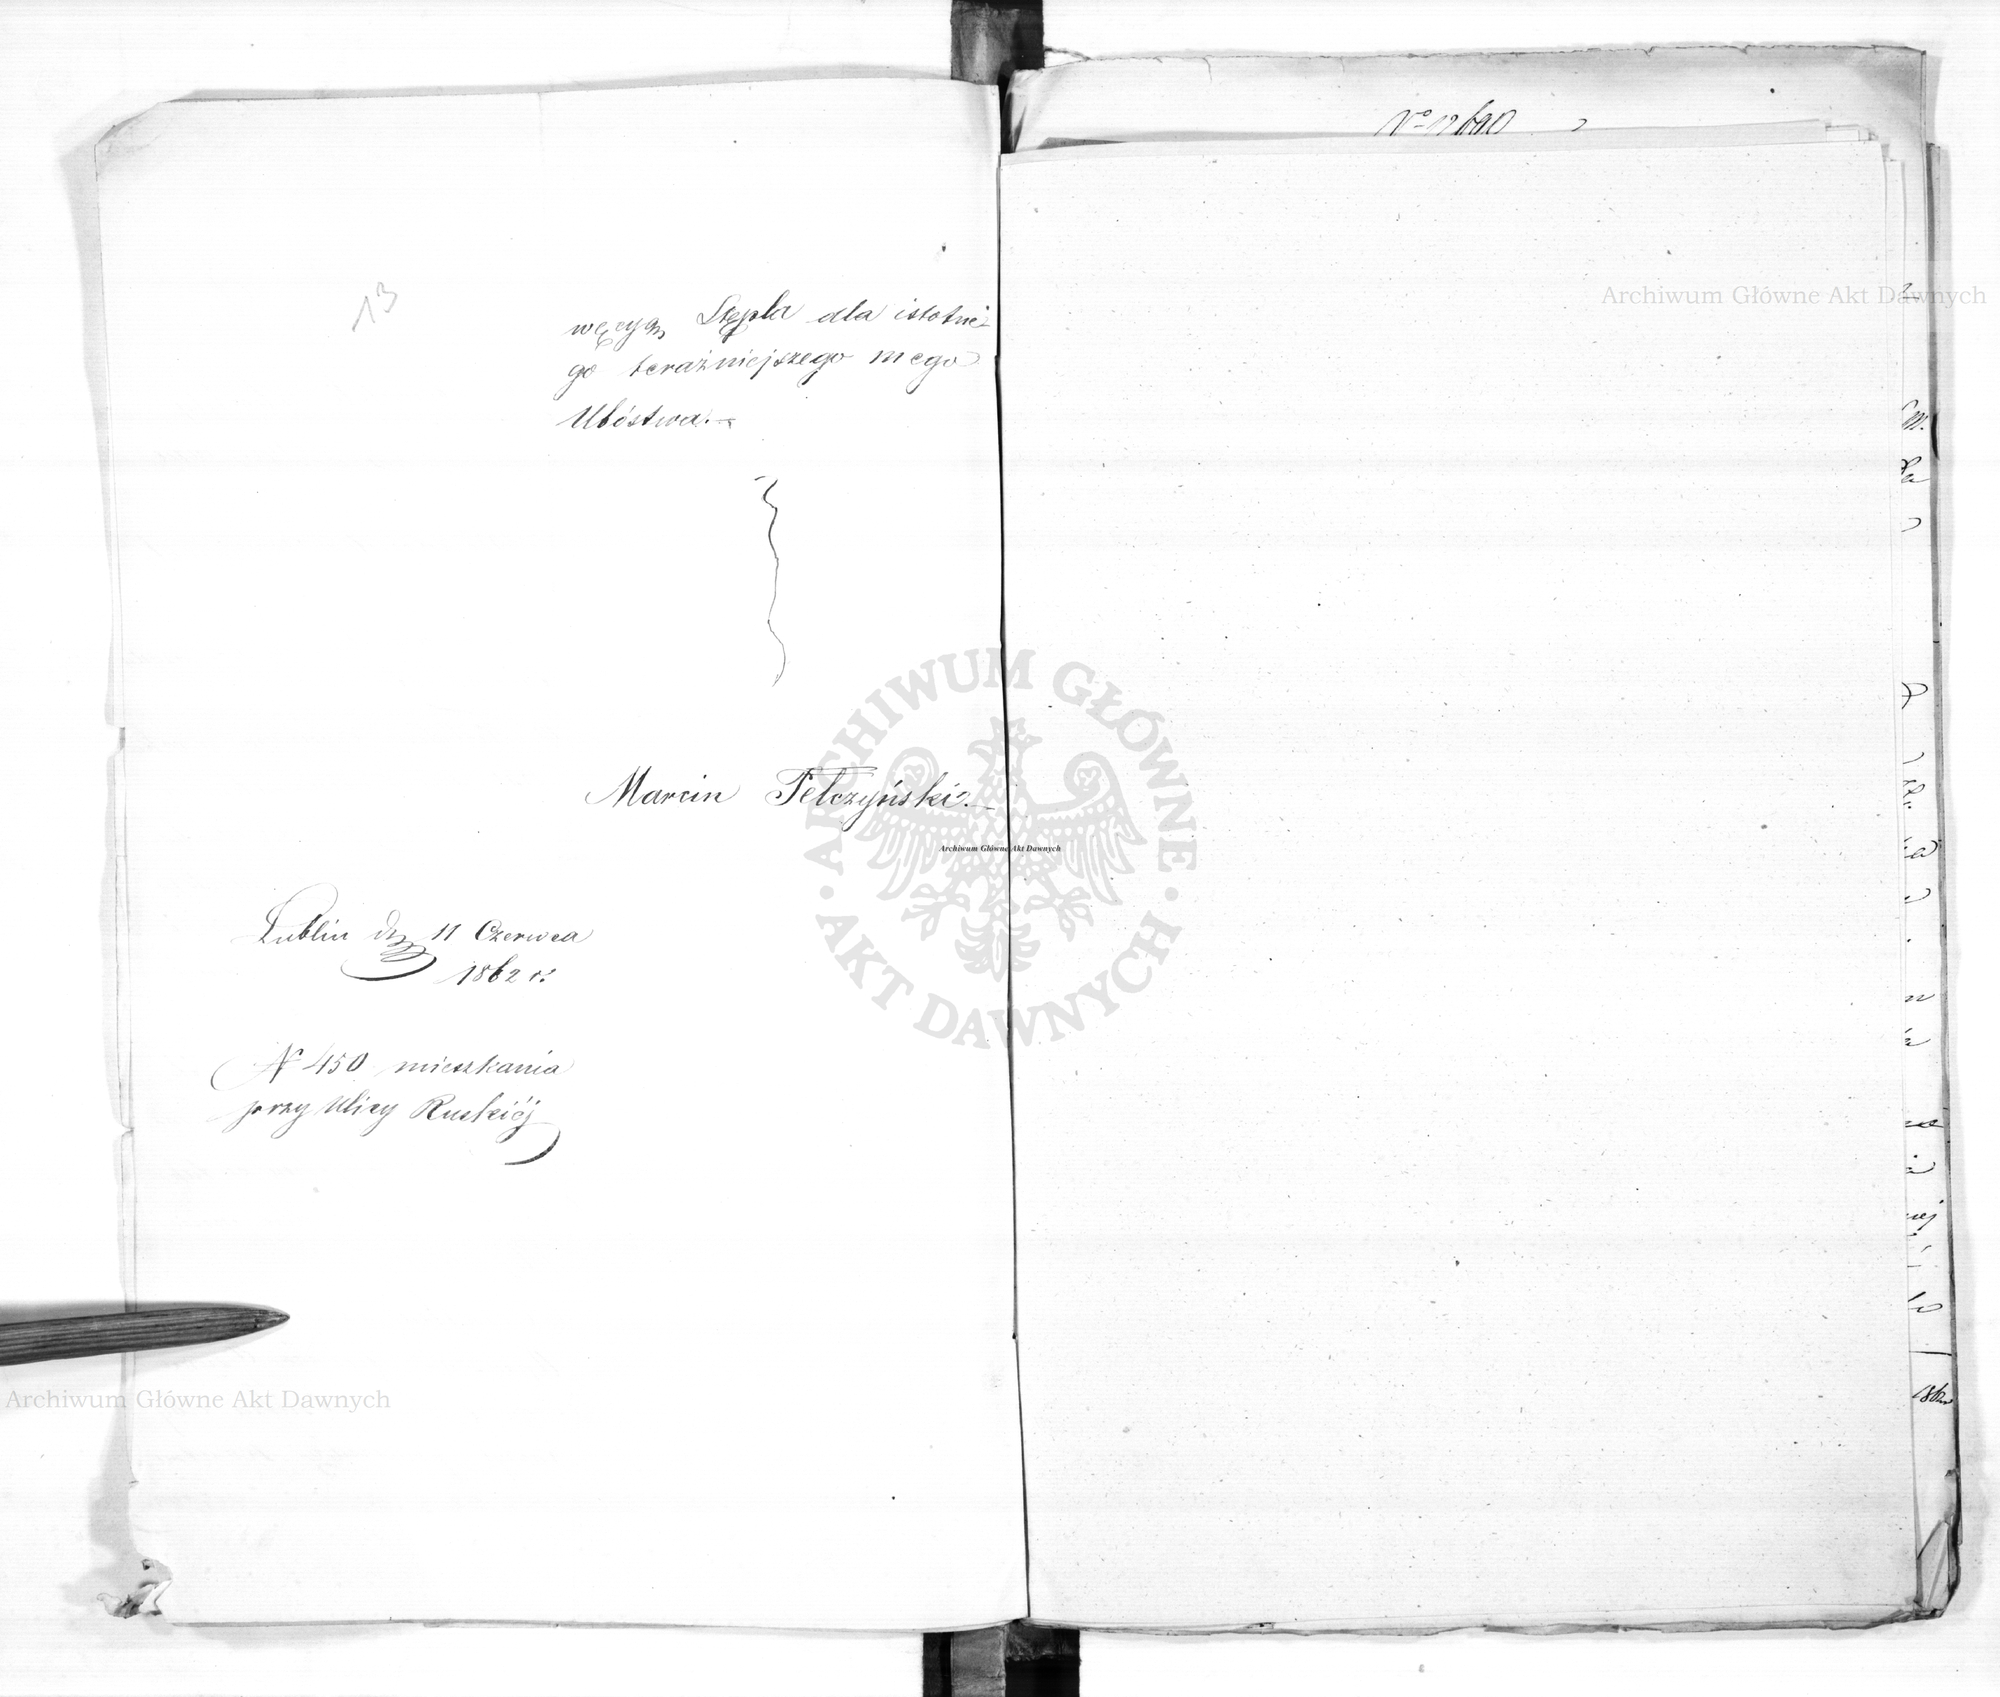 13
Stępla dla istotne-
go teraźniejszego mego
Ubóstwa.
Marcin Felczyński.
Lublin d. 11 Czerwca
1862 r.
N 450 mieszkania
przy Ulicy Ruskiéj
Archiwum Główne Akt Dawnych
Archiwum Główne Akt Dawnych
ARCHIWUM GŁÓWNE
AKT DAWNYCH
Archiwum Główne Akt Dawnych